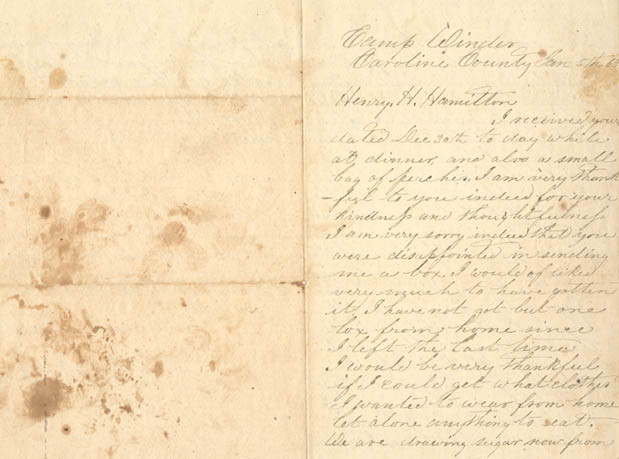 Camp Winder
Caroline County Jan 5th 6
Henry. H. Hamilton
I received your
dated Dec 30th to day while
at dinner, and also a small
bag of peaches. I am very thank
-ful to you indeed for your
kindness and thoughtfulness
I am very sorry indeed that you
were disappointed in sending
me a box. I would of liked
very much to have gotten
it. I have not got but one
box from home since
I left the last time
I would be very thankful
if I could get what clothes
I wanted to wear from home
let alone anything to eat.
We are drawing sugar now from